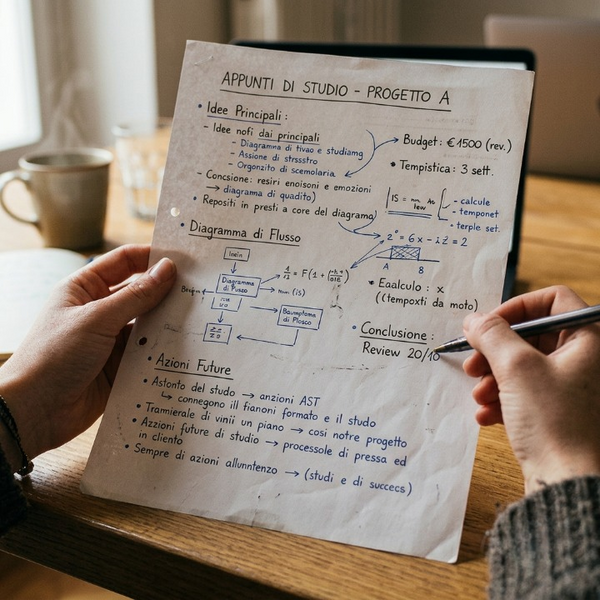 APPUNTI DI STUDIO - PROGETTO A
• Idee Principali:
- Idee nofi dai principali
- Diagramma di tivao e studiamg
- Assione di strssstro
- Orgonzito di scemolaria
- Concsione: resiri enoisoni e emozioni
→ diagramma di quadito)
• Repositi in presti a core del diagrama)
→ Budget: €1500 (rev.)
• Tempistica: 3 sett.
- calcule
- temponet
- terple set.
2² = 6x - iż = 2
A 8
• Eaalculo: x
((tempoxti da moto)
• Diagramma di Flusso
Diagramma di Pusco
Bausmptoma di Plusco
• Conclusione:
Review 20/10
• Azioni Future
• Astonto del studo → anzioni AST
↳ connegono ill fianoni formato e il studo
• Tramierale di vinii un piano → cosi notre progetto
• Azzioni future di studio → processole di pressa ed
in cliento
• Sempre di azioni allunntenzo → (studi e di succecs)